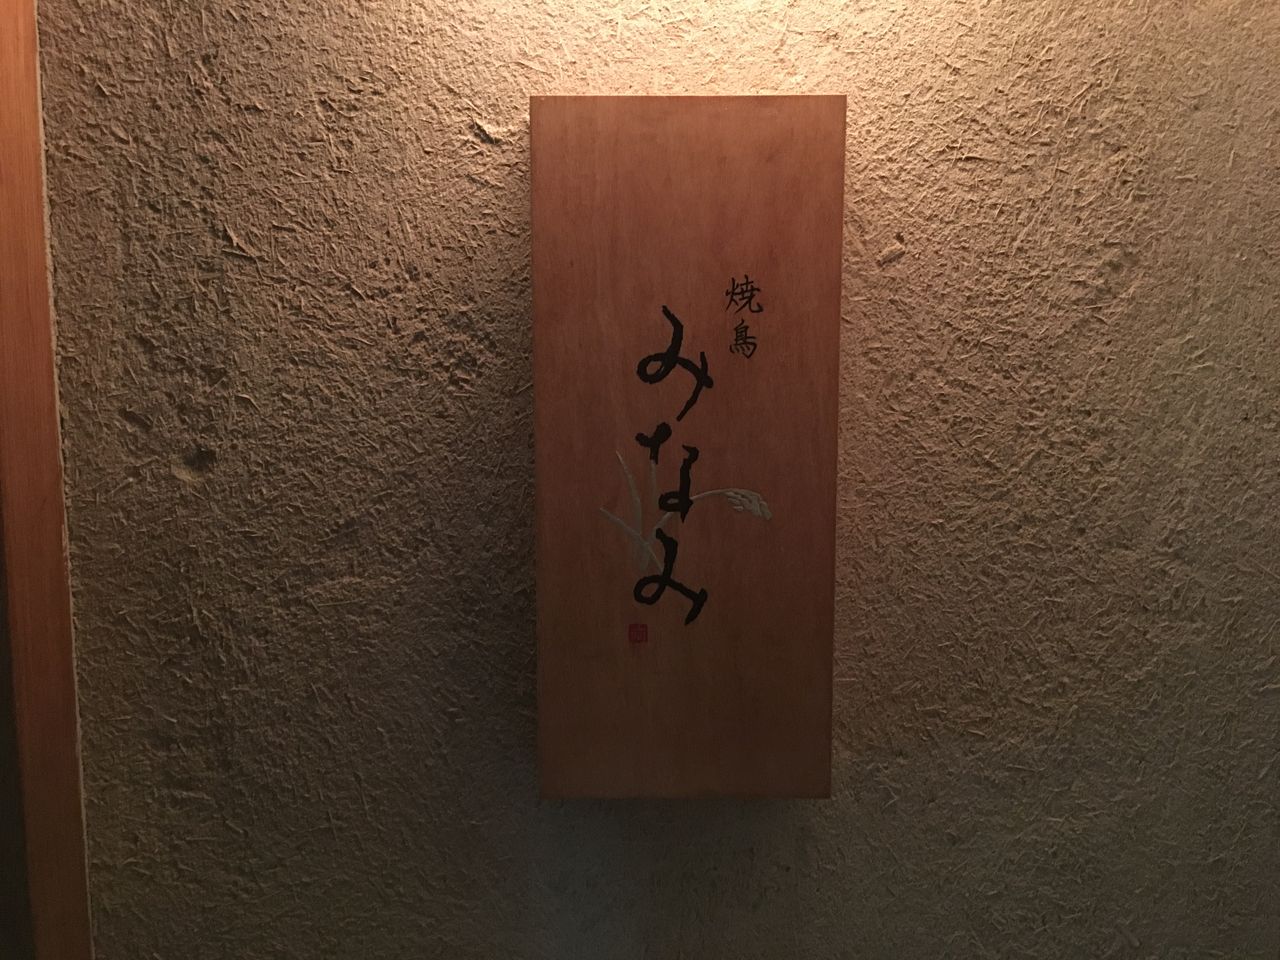 焼鳥
みなみ